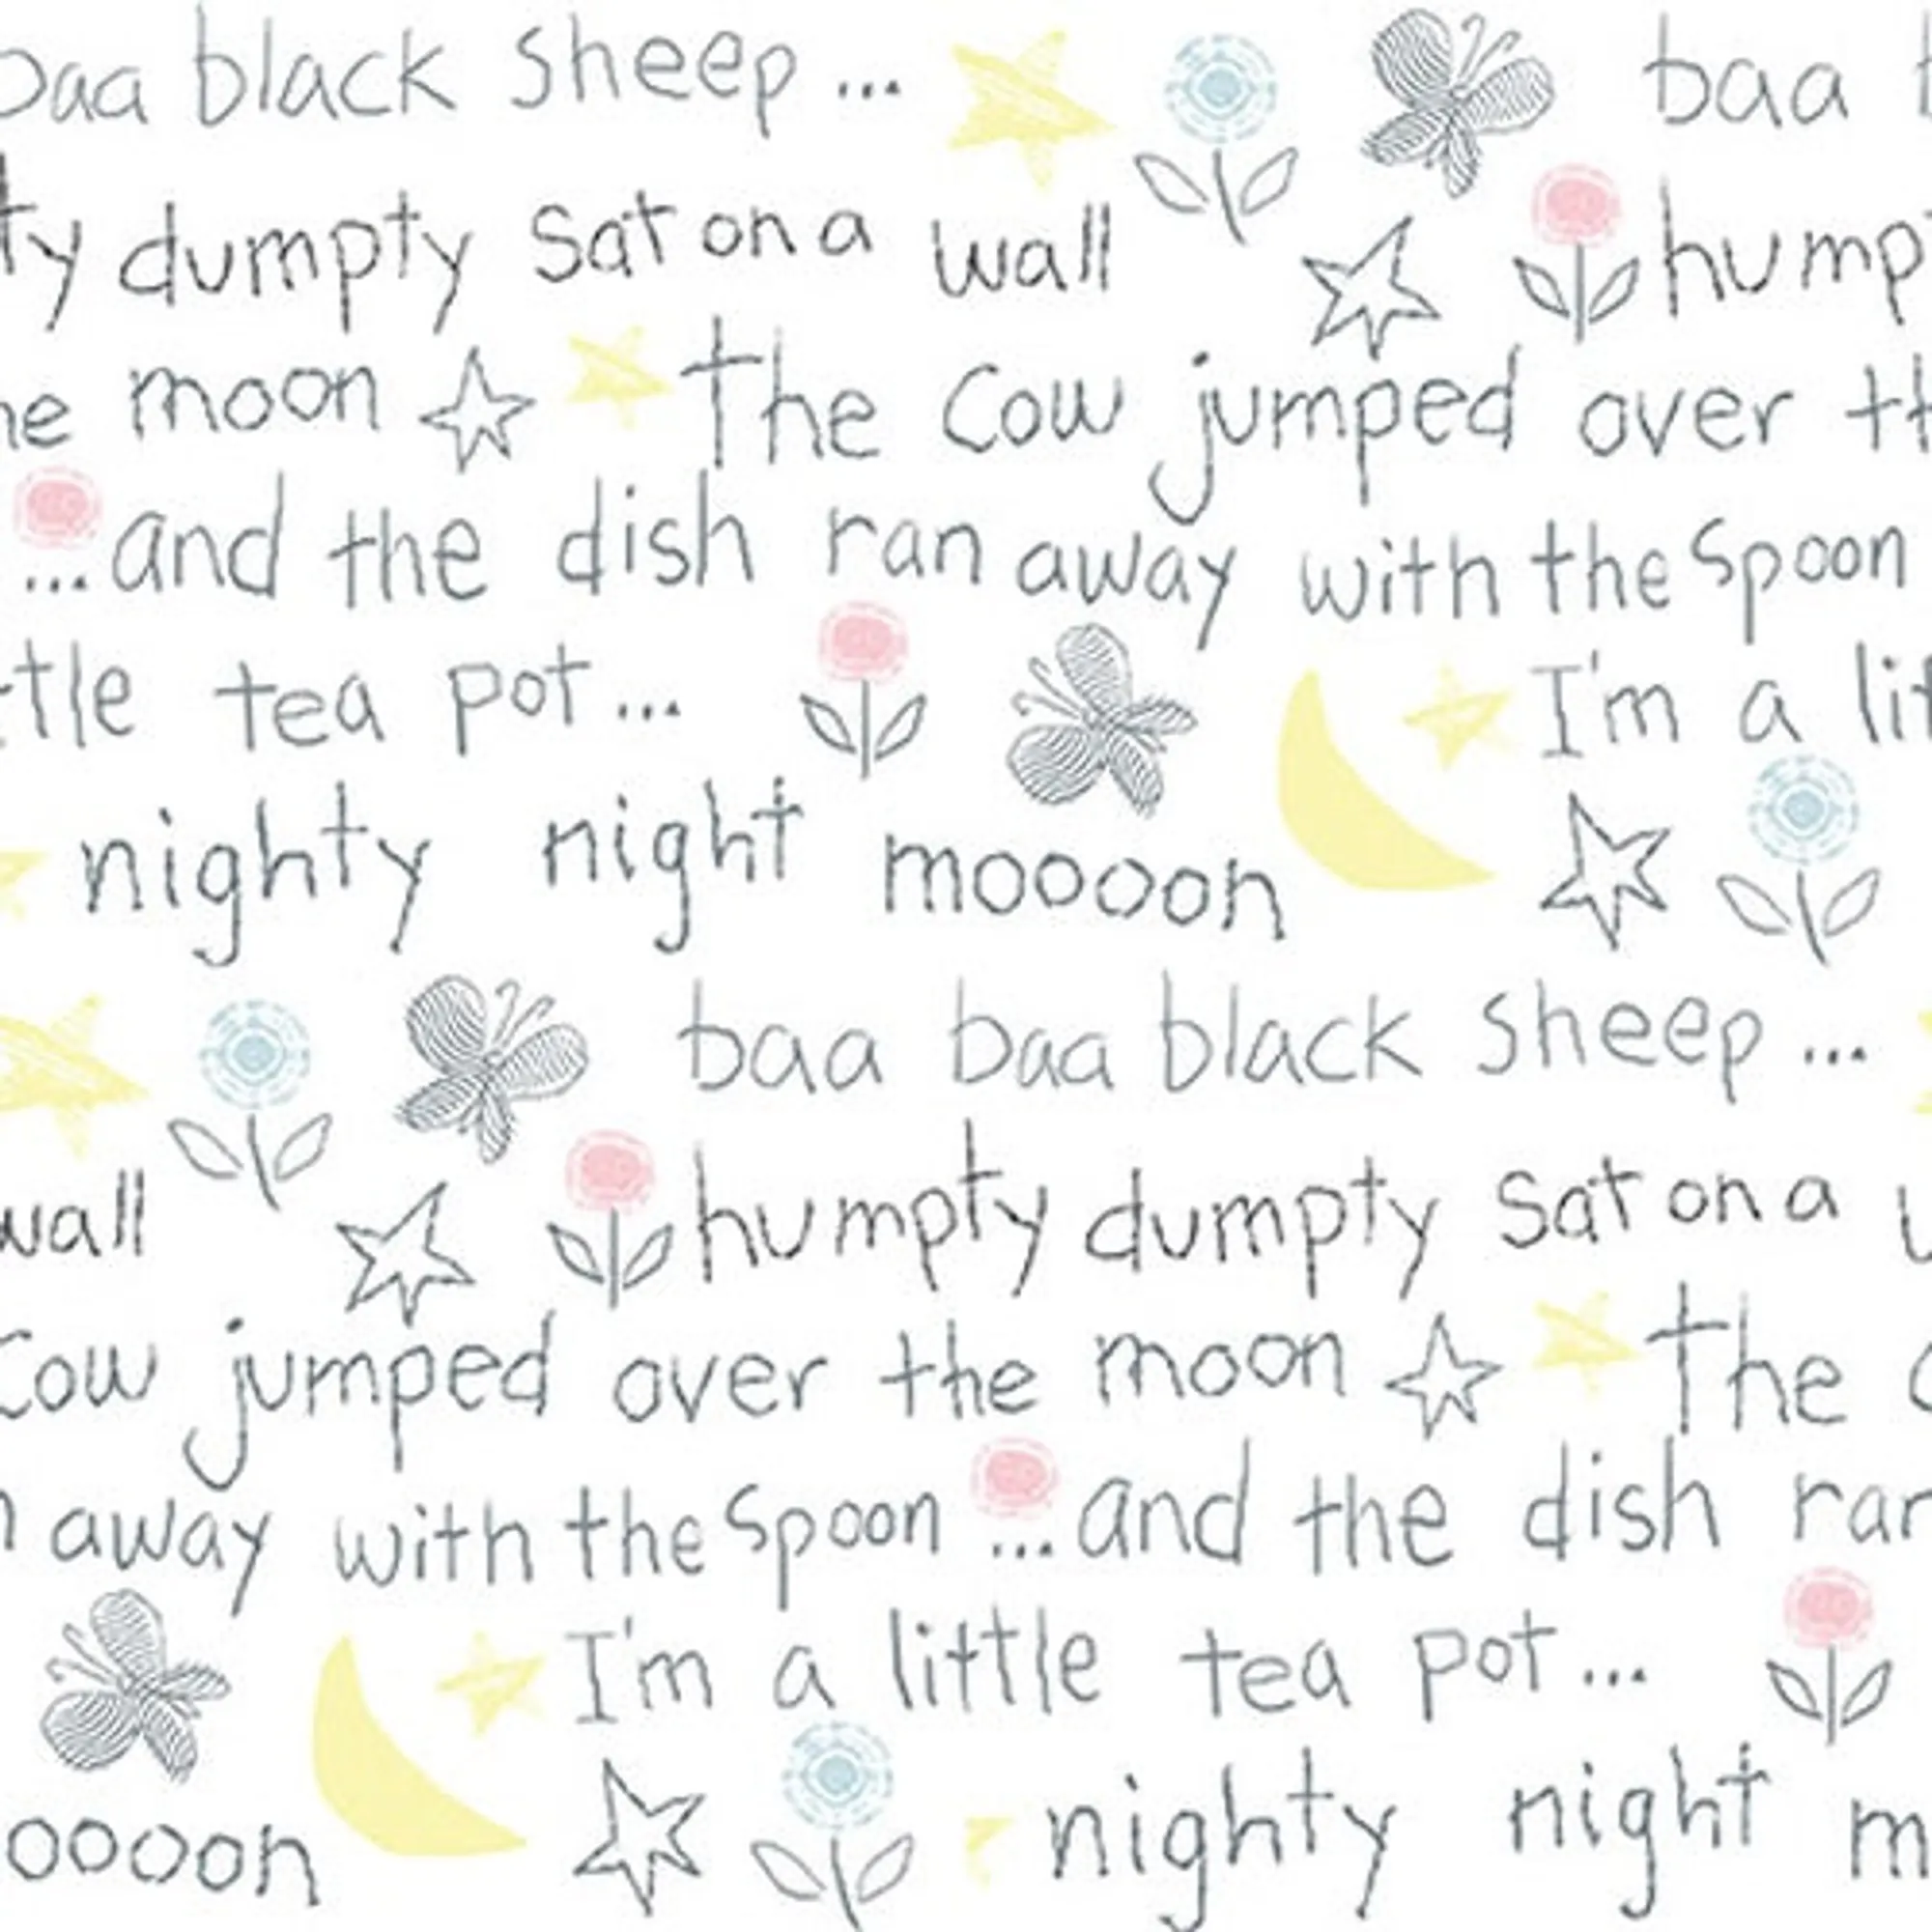 baa black sheep... baa b
ty dumpty sat on a wall hump
he moon The Cow jumped over th
...and the dish ran away with the spoon
ttle tea pot... I'm a lit
nighty night moooon
baa baa black sheep...
wall humpty dumpty sat on a w
Cow jumped over the moon The c
n away with the spoon ...and the dish ran
I'm a little tea pot...
oooon nighty night m